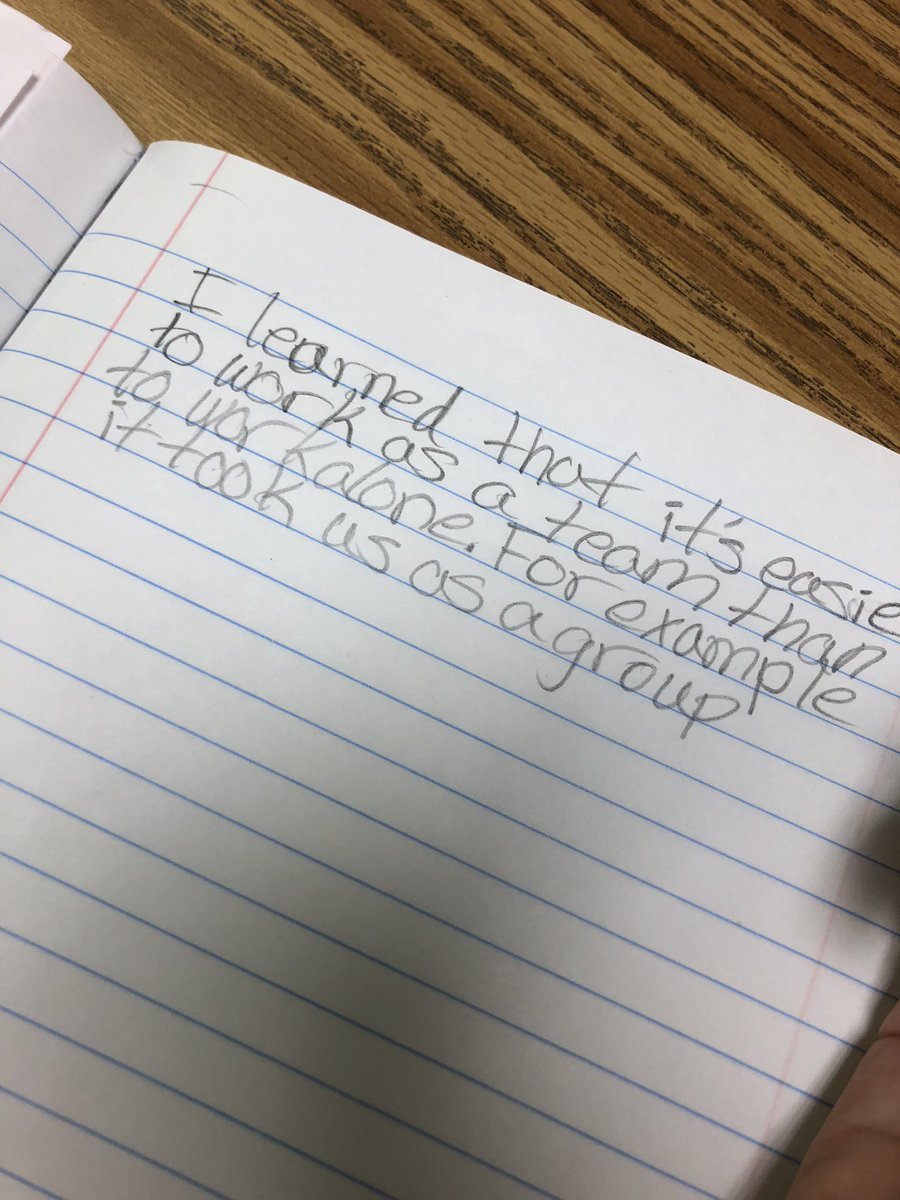 I learned that it's easie
to work as a team than
to work alone. For example
it took us as a group